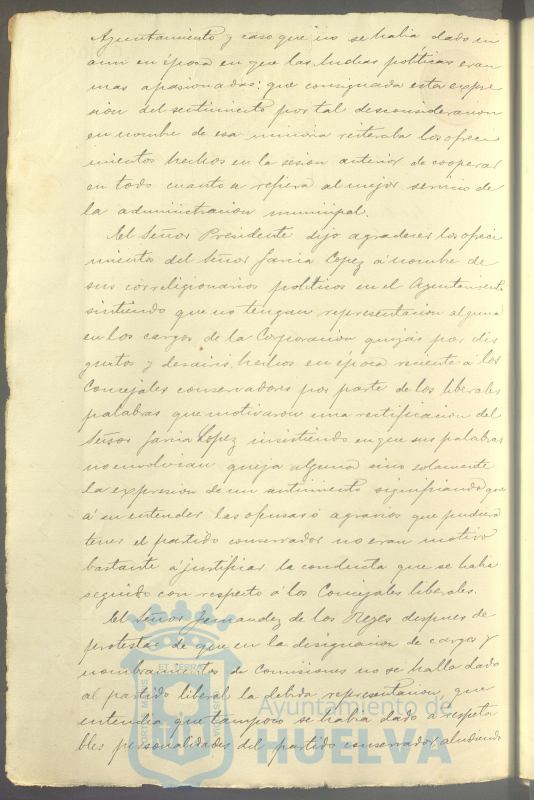 Ayuntamiento y caso que no se habia dado ni
aun en época en que las luchas políticas eran
mas apasionadas: que consignada esta expre
sion del sentimiento por tal desconsideracion
en nombre de esa minoria reiteraba los ofreci
mientos hechos en la sesion anterior de cooperar
en todo cuanto se refiera al mejor servicio de
la administracion municipal.
El Señor Presidente dijo agradecer los ofreci
mientos del Señor Garcia Lopez á nombre de
sus correligionarios politicos en el Ayuntamiento
sintiendo que no tengan representacion alguna
en los cargos de la Corporacion quizás por dis
gustos y desaires hechos en época reciente á los
Concejales conservadores por parte de los liberales
palabras que motivaron una rectificacion del
Señor Garcia Lopez insistiendo en que sus palabras
no envolvian queja alguna sino solamente
la expresion de un sentimiento significando que
á su entender las ofensas ó agravios que pudiera
tener el partido conservador no eran motivo
bastante á justificar la conducta que se habia
seguido con respecto á los Concejales liberales.
El Señor Fernandez de los Reyes despues de
protestar de que en la designacion de cargos y
nombramientos de Comisiones no se halla dado
al partido liberal la debida representacion, que
entendia que tampoco se habia dado á respeta
bles personalidades del partido conservador, aludiendo
Ayuntamiento de
HUELVA